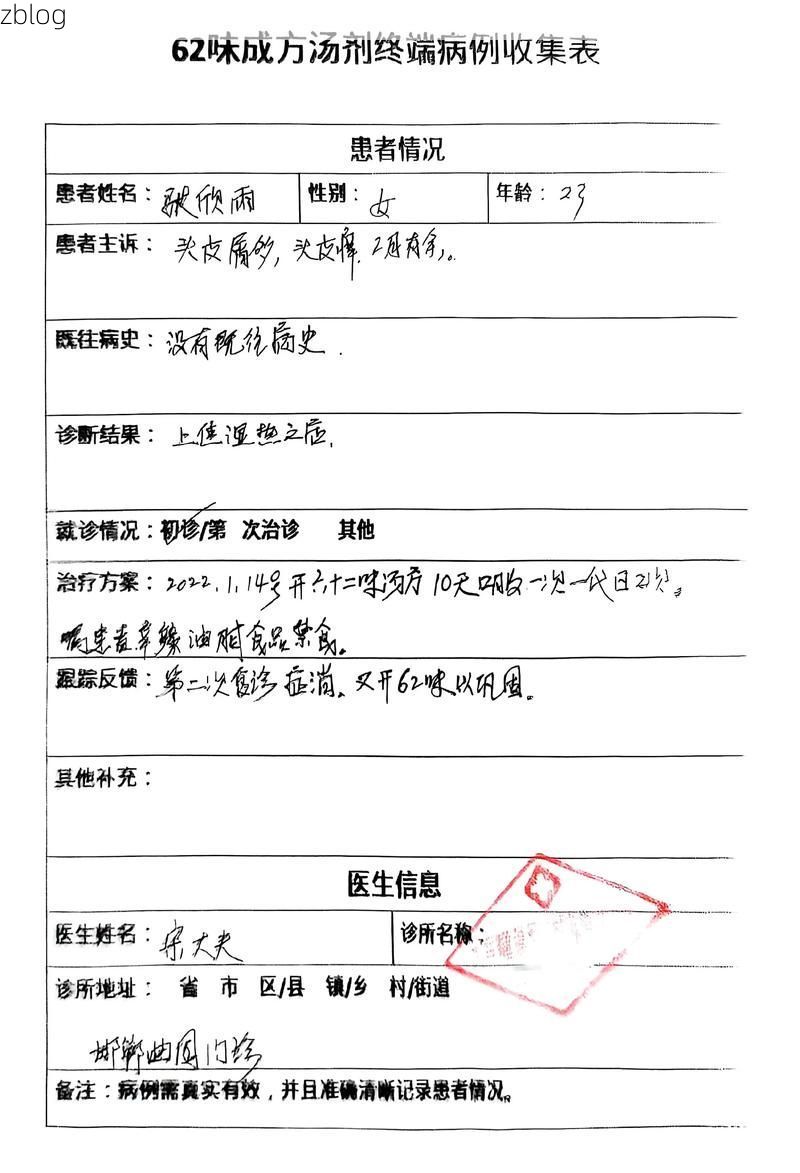 zblog
62味成方汤剂终端病例收集表
患者情况
患者姓名： 欣雨 性别：女 年龄：23
患者主诉：头皮屑多，头皮痒，2月有余。
既往病史：没有既往病史.
诊断结果：上焦湿热之症.
就诊情况：初诊/第 次治诊 其他
治疗方案：2022.1.14号开六十二味汤方10天口服一次一代日2次。
嘱患者辛辣油腻食品禁食。
跟踪反馈：第二次复诊症消。又开62味以巩固。
其他补充：
医生信息
医生姓名：宋大夫 诊所名称：
诊所地址： 省 市 区/县 镇/乡 村/街道
邯郸曲周门诊
备注：病例需真实有效，并且准确清晰记录患者情况。